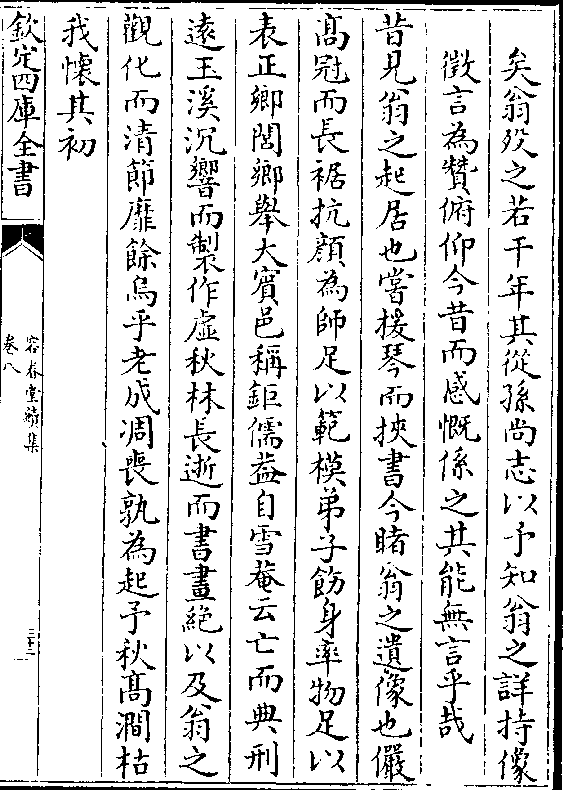 矣翁歿之若干年其從孫尚志以予知翁之詳持像
徵言為贊俯仰今昔而感慨係之其能無言乎哉
昔見翁之起居也嘗援琴而挾書今睹翁之遺像也儼
高冠而長裾抗顔為師足以範模弟子飭身率物足以
表正鄉閭鄉舉大賓邑稱鉅儒葢自雪菴云亡而典刑
遠玉溪沉響而製作虚秋林長逝而書畫絶以及翁之
觀化而清節靡餘烏乎老成凋喪孰為起予秋髙澗枯
我懐其初
欽定四庫全書
容春堂續集
卷八
三十二